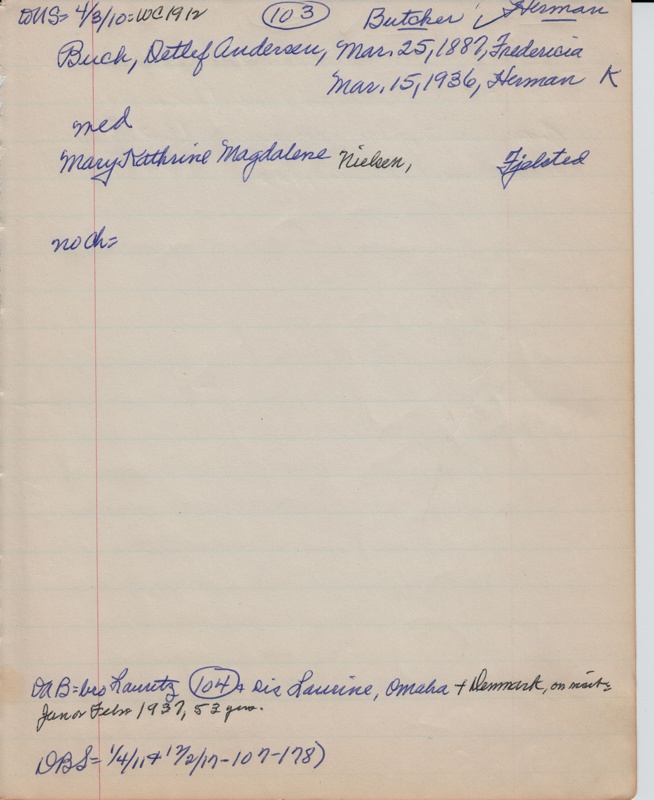 DUS = 4/3/10 = WC 1912 103 Butcher Herman
Buck, Detlef Andersen, Mar. 25, 1887, Fredericia
Mar. 15, 1936, Herman K
med
Mary Kathrine Magdalene Nielsen, Fjelsted
no ch =
DAB = bro Lauritz 104 + sis Laurine, Omaha + Denmark, on visit =
Jan or Febr 1937, 53 yrs.
DBS = 1/4/11 + 12/2/17 - 107 - 178)